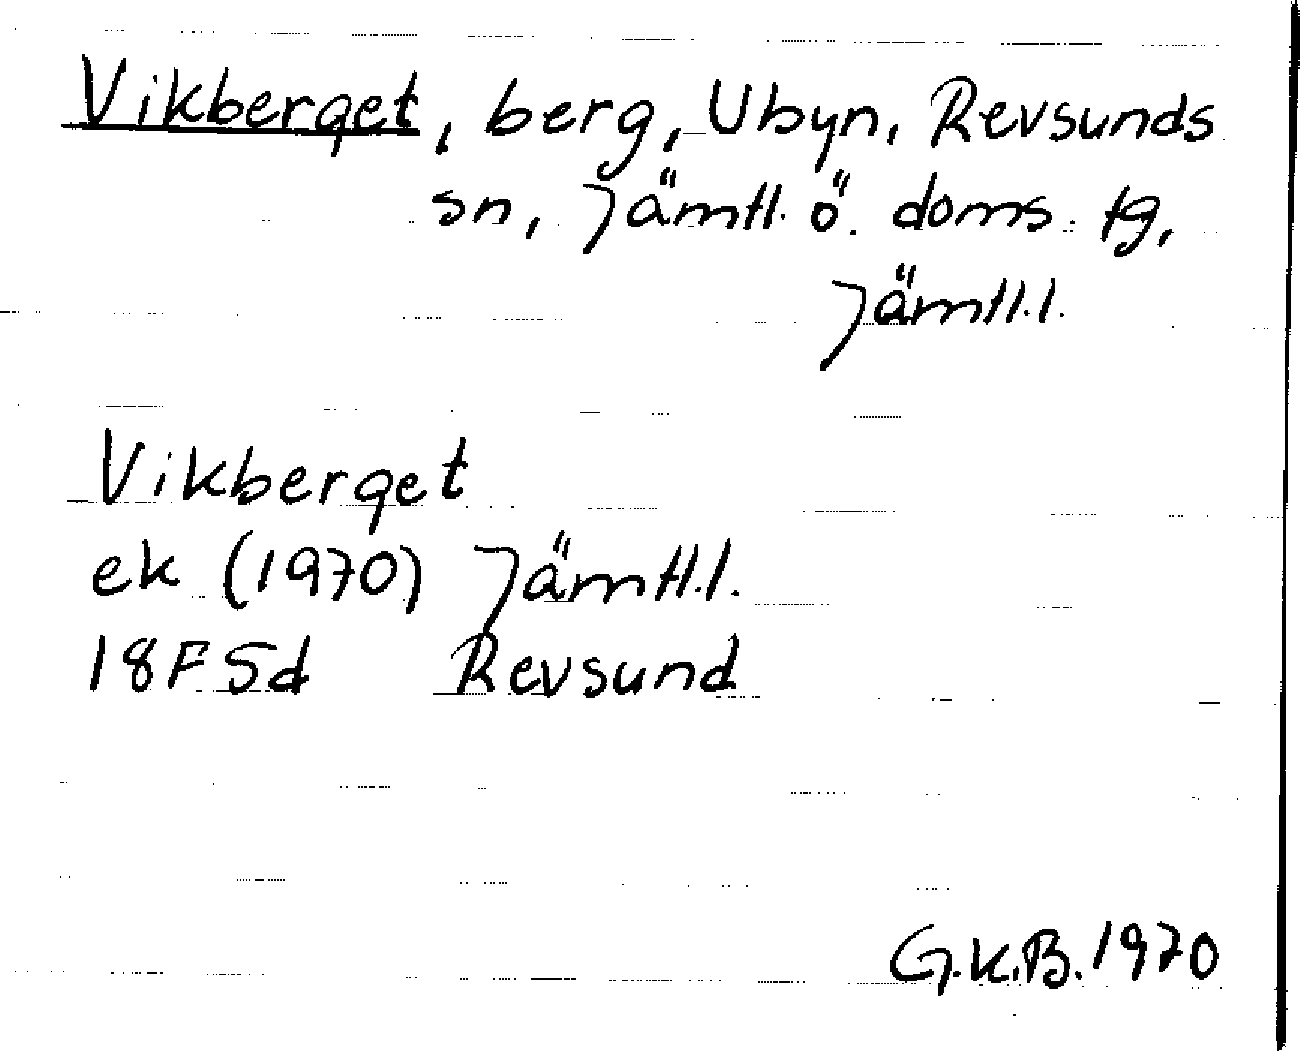 Vikberget, berg, Ubyn, Revsunds
sn, Jämtl. ö. doms. tg,
Jämtl.l.
Vikberget
ek (1970) Jämtl.l.
18F5d Revsund
G.K.B. 1970